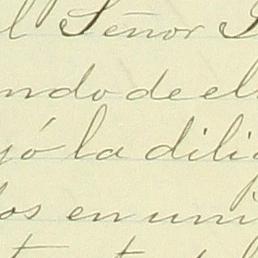 l Señor
ndo de el
yó la dili
los en uni